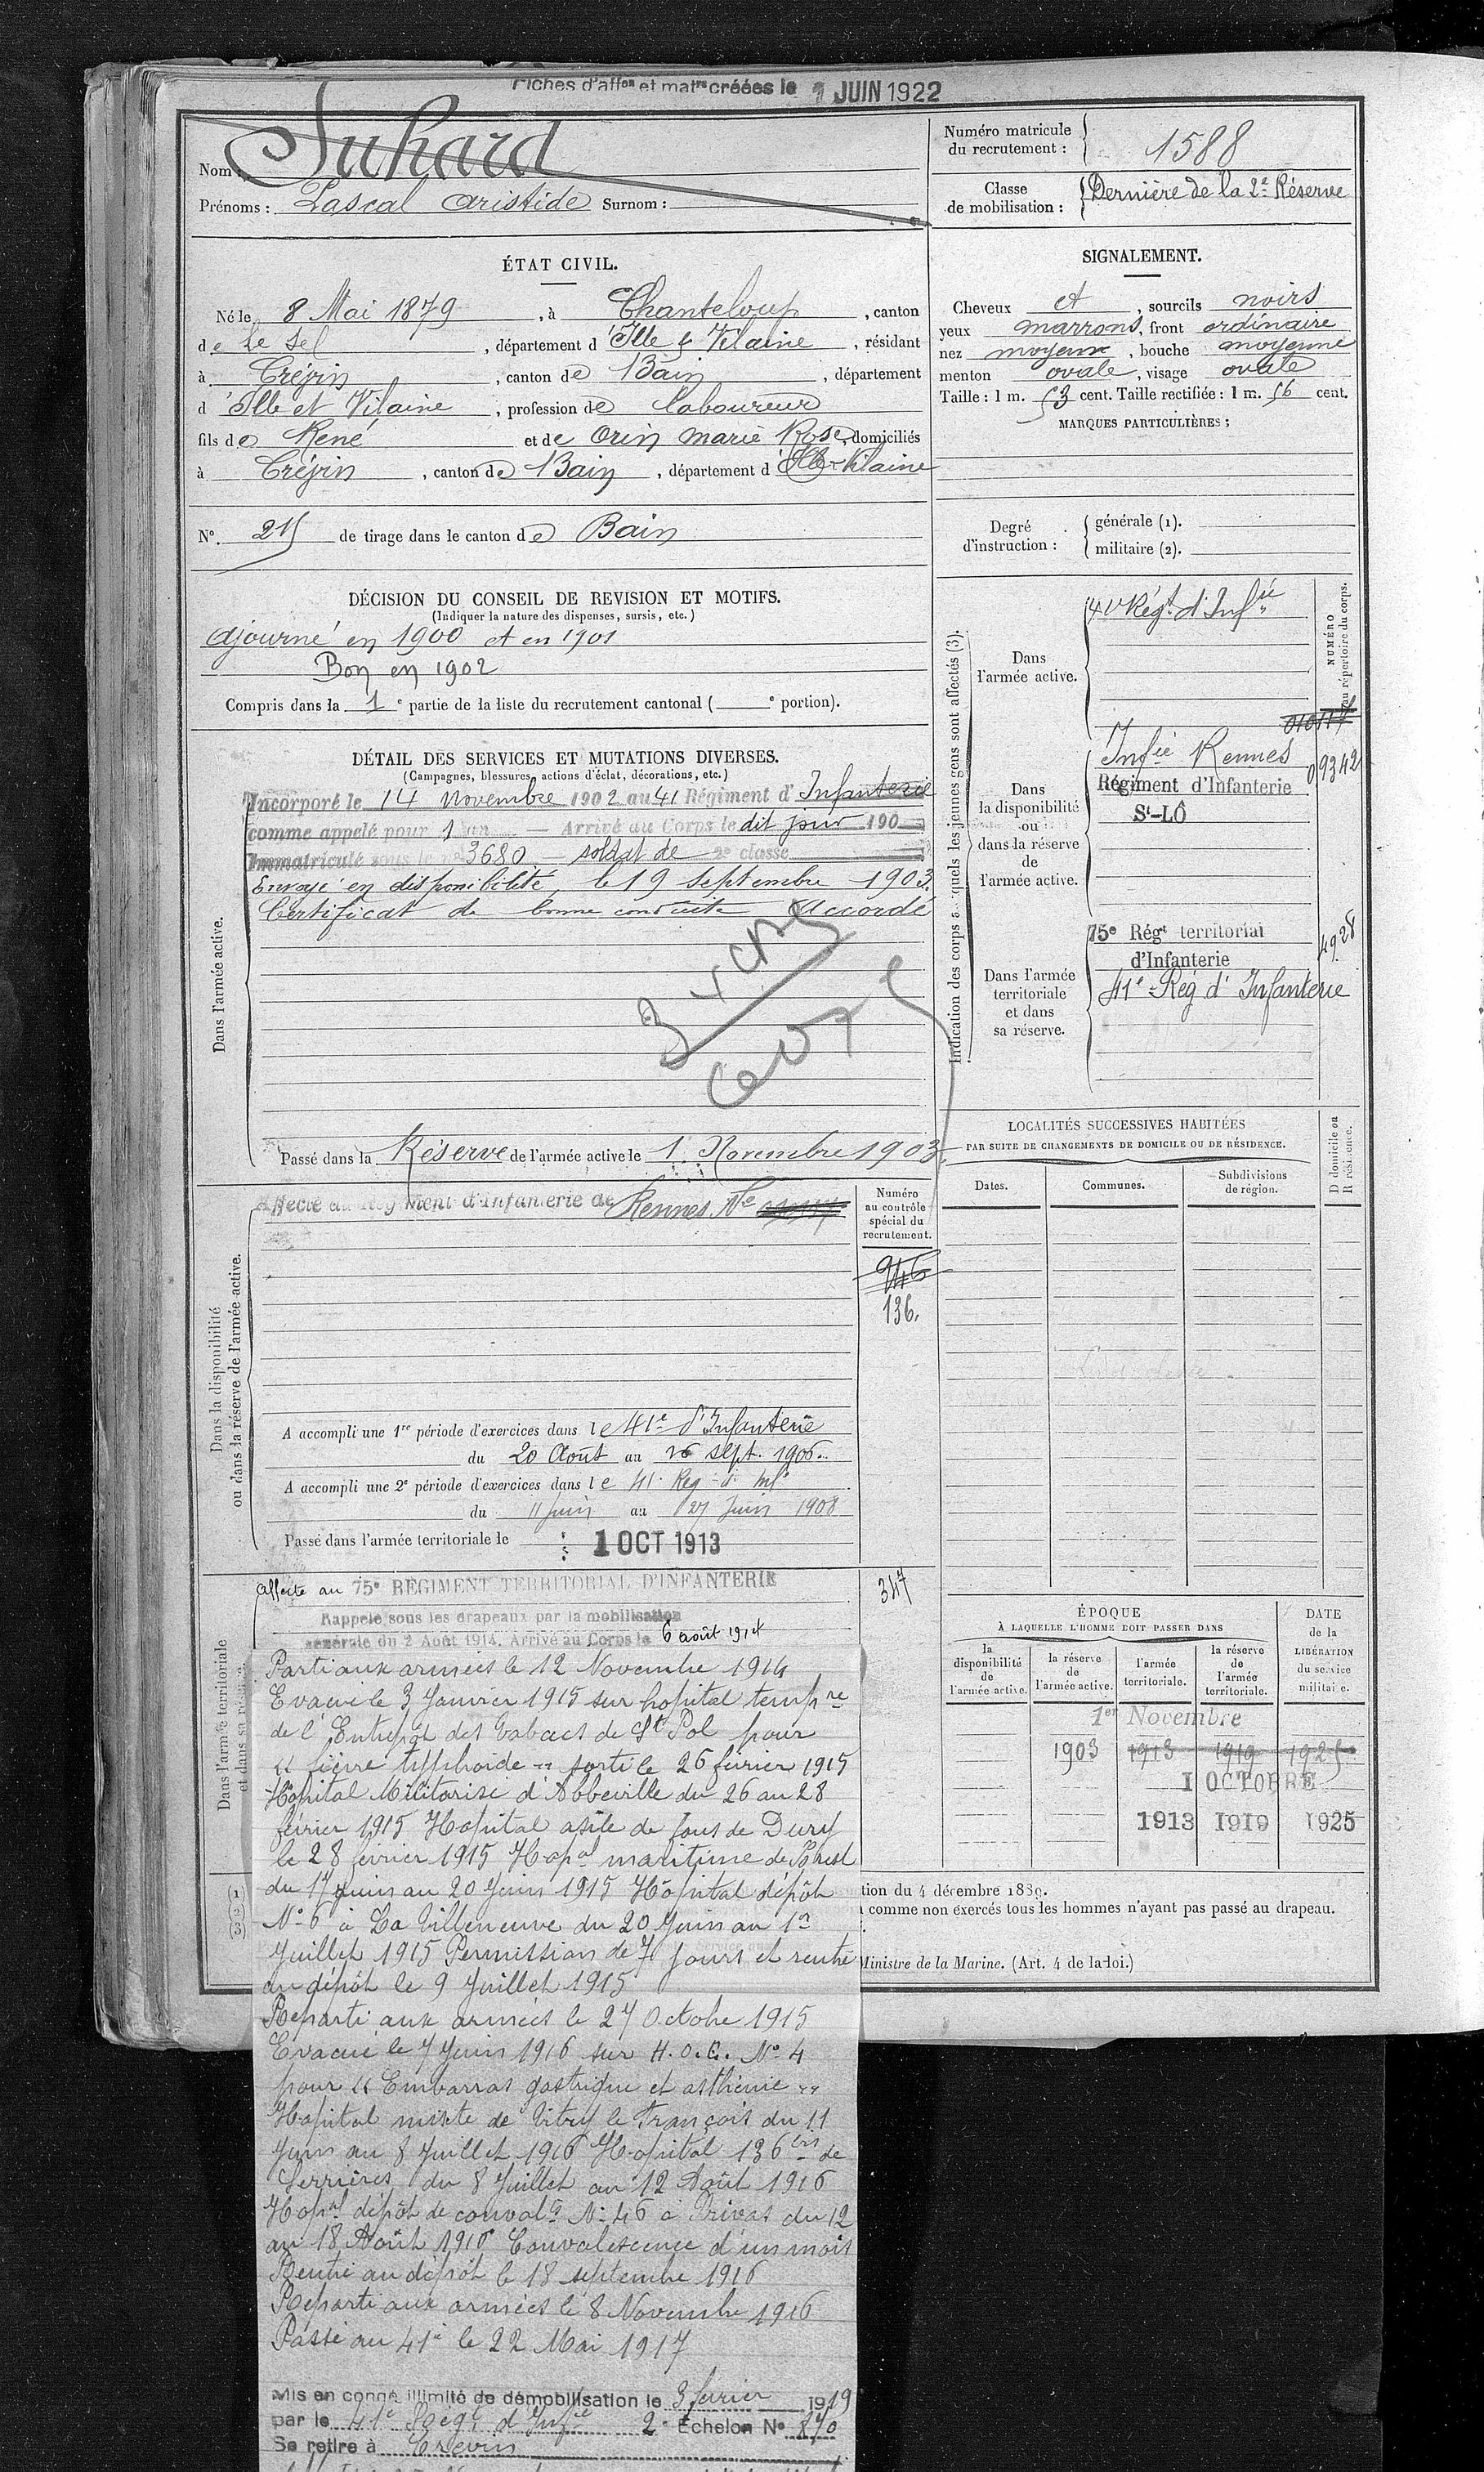 Fiches d'affon et matre créées le 1 JUIN 1922
Nom : Juhard
Prénoms : Pascal Aristide Surnom :
Numéro matricule du recrutement : 1588
Classe de mobilisation : Dernière de la 2e Réserve
ÉTAT CIVIL.
Né le 8 Mai 1879, à Chanteloup, canton
de Le Sel, département d'Ille & Vilaine, résidant
à Crévin, canton de Bain, département
d'Ille et Vilaine, profession de laboureur
fils de René et de Orin Marie Rose, domiciliés
à Crévin, canton de Bain, département d'Ille & Vilaine
No. 215 de tirage dans le canton de Bain
SIGNALEMENT.
Cheveux et, sourcils noirs
yeux marrons, front ordinaire
nez moyen, bouche moyenne
menton ovale, visage ovale
Taille : 1 m. 53 cent. Taille rectifiée : 1 m. 56 cent.
MARQUES PARTICULIÈRES :
Degré d'instruction :
générale (1).
militaire (2).
DÉCISION DU CONSEIL DE REVISION ET MOTIFS.
(Indiquer la nature des dispenses, sursis, etc.)
Ajourné en 1900 et en 1901
Bon en 1902
Compris dans la 1e partie de la liste du recrutement cantonal ( e portion).
DÉTAIL DES SERVICES ET MUTATIONS DIVERSES.
(Campagnes, blessures, actions d'éclat, décorations, etc.)
Dans l'armée active.
Incorporé le 14 novembre 1902 au 41 Régiment d'Infanterie
comme appelé pour 1 an — Arrivé au Corps le dit jour 190
Immatriculé sous le no 3680 — soldat de 2e classe
Envoyé en disponibilité, le 19 septembre 1903.
Certificat de bonne conduite Accordé
Passé dans la Réserve de l'armée active le 1 Novembre 1903.
Indication des corps auxquels les jeunes gens sont affectés (3).
NUMÉRO au répertoire du corps.
Dans l'armée active.
41e Régt d'Infie
Dans la disponibilité ou dans la réserve de l'armée active.
Infie Rennes
09342
Régiment d'Infanterie
St-LÔ
Dans l'armée territoriale et dans sa réserve.
75e Régt territorial
d'Infanterie
4928
41e Rég d'Infanterie
LOCALITÉS SUCCESSIVES HABITÉES
PAR SUITE DE CHANGEMENTS DE DOMICILE OU DE RÉSIDENCE.
Dates.
Communes.
Subdivisions de région.
D domicile ou R résidence.
Dans la disponibilité ou dans la réserve de l'armée active.
Affecté au Régiment d'Infanterie de Rennes No
Numéro au contrôle spécial du recrutement.
946
136.
A accompli une 1re période d'exercices dans le 41e d'Infanterie
du 20 Août au 16 sept. 1906.
A accompli une 2e période d'exercices dans le 41 Reg d' infie
du 11 Juin au 27 Juin 1908
Passé dans l'armée territoriale le 1 OCT 1913
Dans l'armée territoriale et dans sa réserve
Affecté au 75e RÉGIMENT TERRITORIAL D'INFANTERIE
347
Rappelé sous les drapeaux par la mobilisation
générale du 2 Août 1914. Arrivé au Corps le 6 août 1914
ÉPOQUE
À LAQUELLE L'HOMME DOIT PASSER DANS
la disponibilité de l'armée active.
la réserve de l'armée active.
l'armée territoriale.
la réserve de l'armée territoriale.
DATE de la LIBÉRATION du service militaire.
1er Novembre
1903 1913 1919 1925
1 OCTOBRE
1913 1919 1925
Parti aux armées le 12 Novembre 1914
Evacué le 3 Janvier 1915 sur hopital tempre
de l'Entrepôt des Tabacs de St Pol pour
"fièvre typhoïde" sorti le 26 février 1915
Hopital Militarisé d'Abbeville du 26 au 28
février 1915 Hopital asile de fous de Dury
le 28 février 1915 Hopal maritime de Brest
du 17 Juin au 20 Juin 1915 Hôpital dépôt
No 6 à La Villeneuve du 20 Juin au 1er
Juillet 1915 Permission de 7 jours et rentré
au dépôt le 9 Juillet 1915
Reparti aux armées le 27 Octobre 1915
Evacué le 7 Juin 1916 sur H.O.E. No 4
pour "Embarras gastrique et asthénie"
Hopital mixte de Vitry le François du 11
Juin au 8 Juillet 1916 Hopital 136 bis de
Serrières du 8 Juillet au 12 Août 1916
Hopal dépôt de convalce No 46 à Privas du 12
au 18 Août 1916 Convalescence d'un mois
Rentré au dépôt le 18 septembre 1916
Reparti aux armées le 8 Novembre 1916
Passé au 41e le 22 Mai 1917
Mis en congé illimité de démobilisation le 3 février 1919
par le 41e Régt d'Infie 2e Echelon No 870
Se retire à Crevin
(1)
(2)
(3)
tion du 4 décembre 1889.
comme non exercés tous les hommes n'ayant pas passé au drapeau.
Ministre de la Marine. (Art. 4 de la loi.)